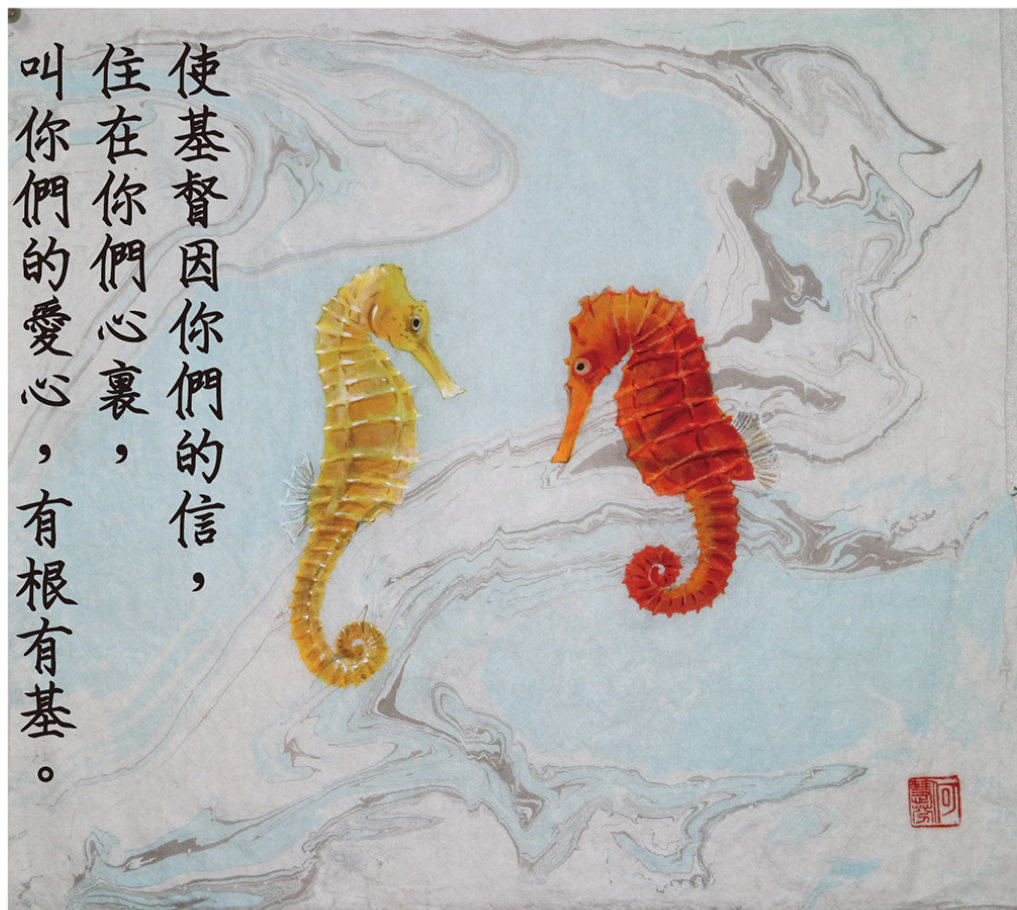 使基督因你們的信，
住在你們心裏，
叫你們的愛心，有根有基。
何
慧芬